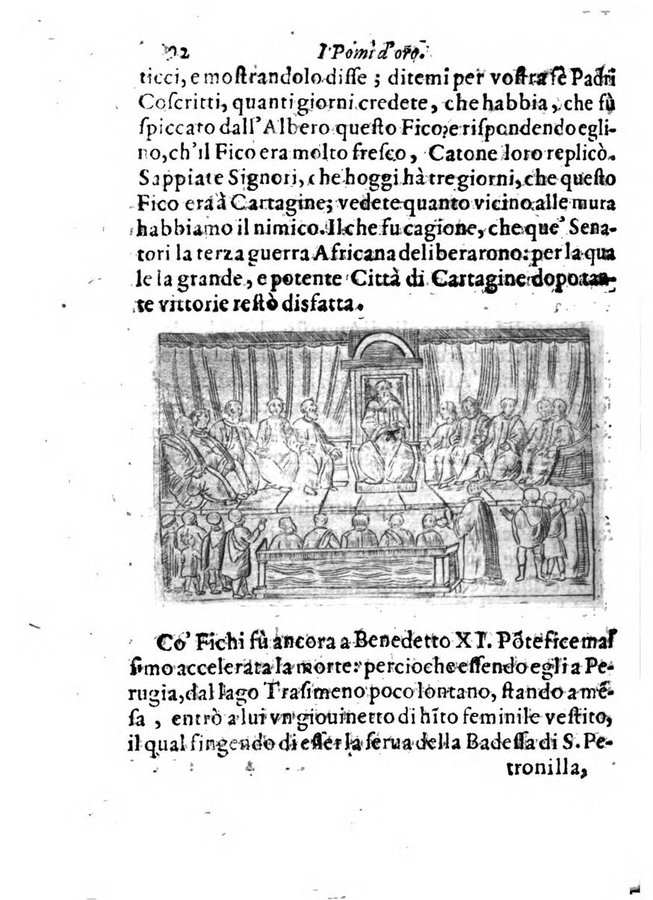 92 I Pomi d'oro.
ticci, e mostrandolo disse; ditemi per vostra fè Padri
Coscritti, quanti giorni credete, che habbia, che fù
spiccato dall'Albero questo Fico? e rispondendo egli-
no, ch'il Fico era molto fresco, Catone loro replicò.
Sappiate Signori, che hoggi hà tre giorni, che questo
Fico era à Cartagine; vedete quanto vicino alle mura
habbiamo il nimico. Il che fu cagione, che que' Sena-
tori la terza guerra Africana deliberarono: per la qua
le la grande, e potente Città di Cartagine dopo tan-
te vittorie restò disfatta.
Co' Fichi fù ancora a Benedetto XI. Põtefice mas
simo accelerata la morte: percioche essendo egli a Pe-
rugia, dal lago Trasimeno poco lontano, stando a mē-
sa, entrò a lui vn giouinetto di hĩto feminile vestito,
il qual fingendo di esser la serua della Badessa di S. Pe-
tronilla,